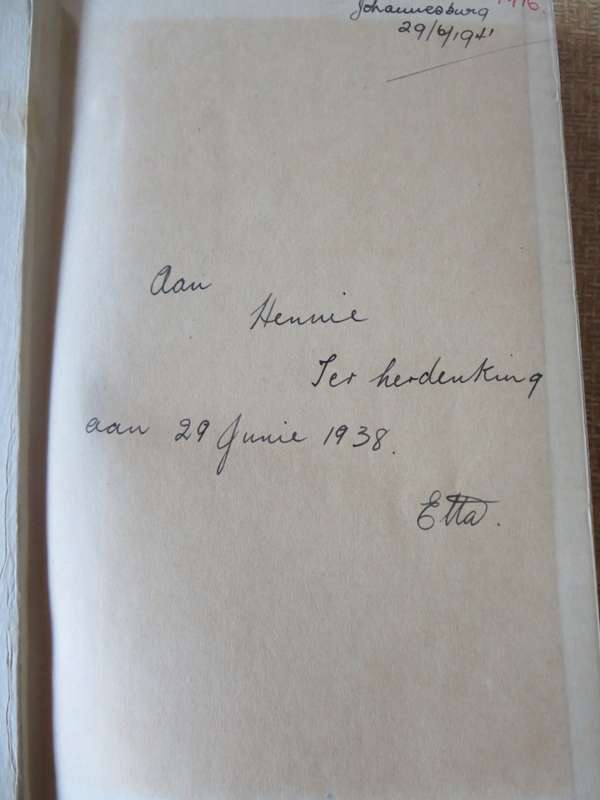 Johannesburg
29/6/1941
Aan
Hennie
Ter herdenking
aan 29 Junie 1938.
Etta.